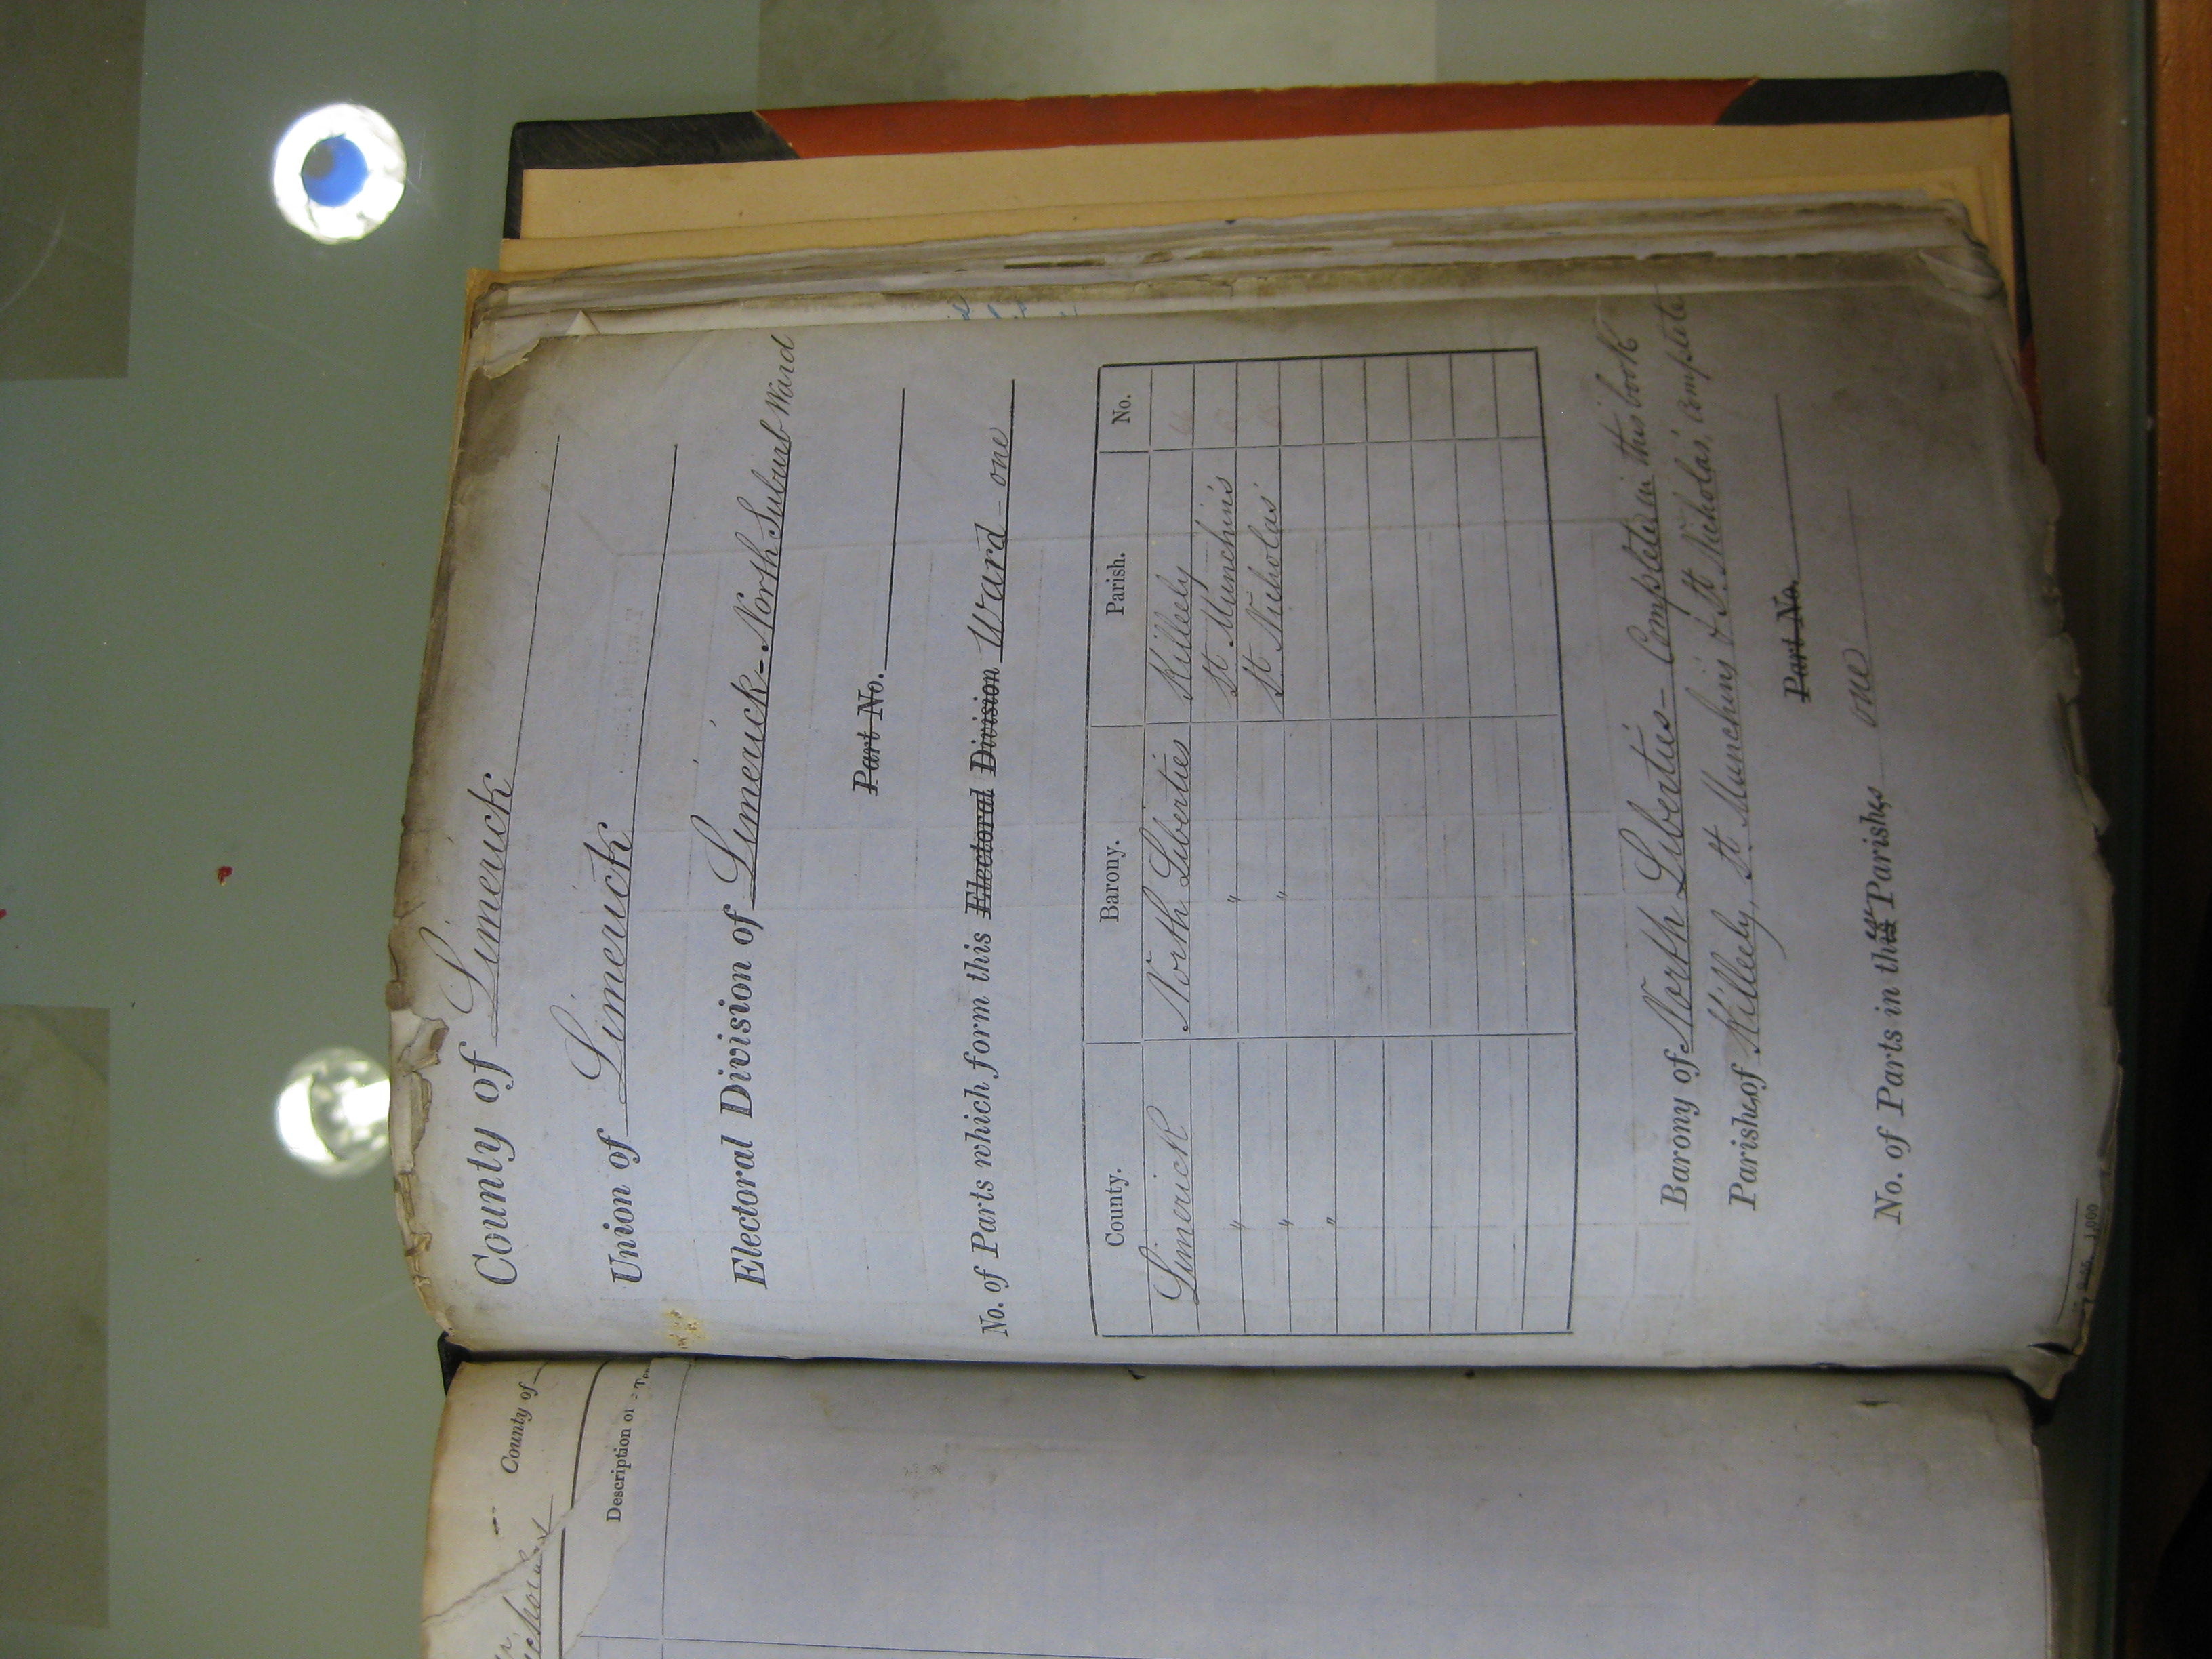 County of Limerick
Union of Limerick
Electoral Division of Limerick - North Suburb Ward
Part No.
No. of Parts which form this Electoral Division Ward - one
County. Barony. Parish. No.
Limerick North Liberties Killeely
" " St Munchin's
" " St Nicholas'
"
Barony of North Liberties - Completed in this book
Parishes of Killeely, St Munchin's & St Nicholas, Complete
Part No.
No. of Parts in these Parishes one
1,000
County of
Description of